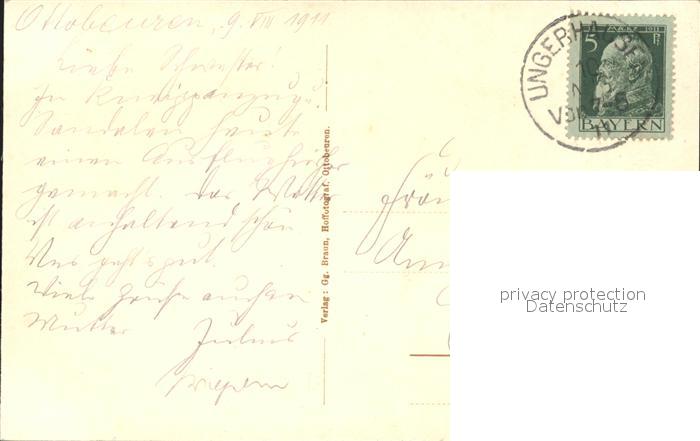 Ottobeuren, 9. VIII 1911
Liebe Schwester!
In Kneippanzug u.
Sandalen heute
einen Ausflug hieher
gemacht. Das Wetter
ist anhaltend schön
Uns geht's gut.
Viele Grüße auch an
Mutter Julius
Verlag: Gg. Braun, Hoffotograf, Ottobeuren.
UNGERHAUSEN
5 1911 Pf
BAYERN
privacy protection
Datenschutz